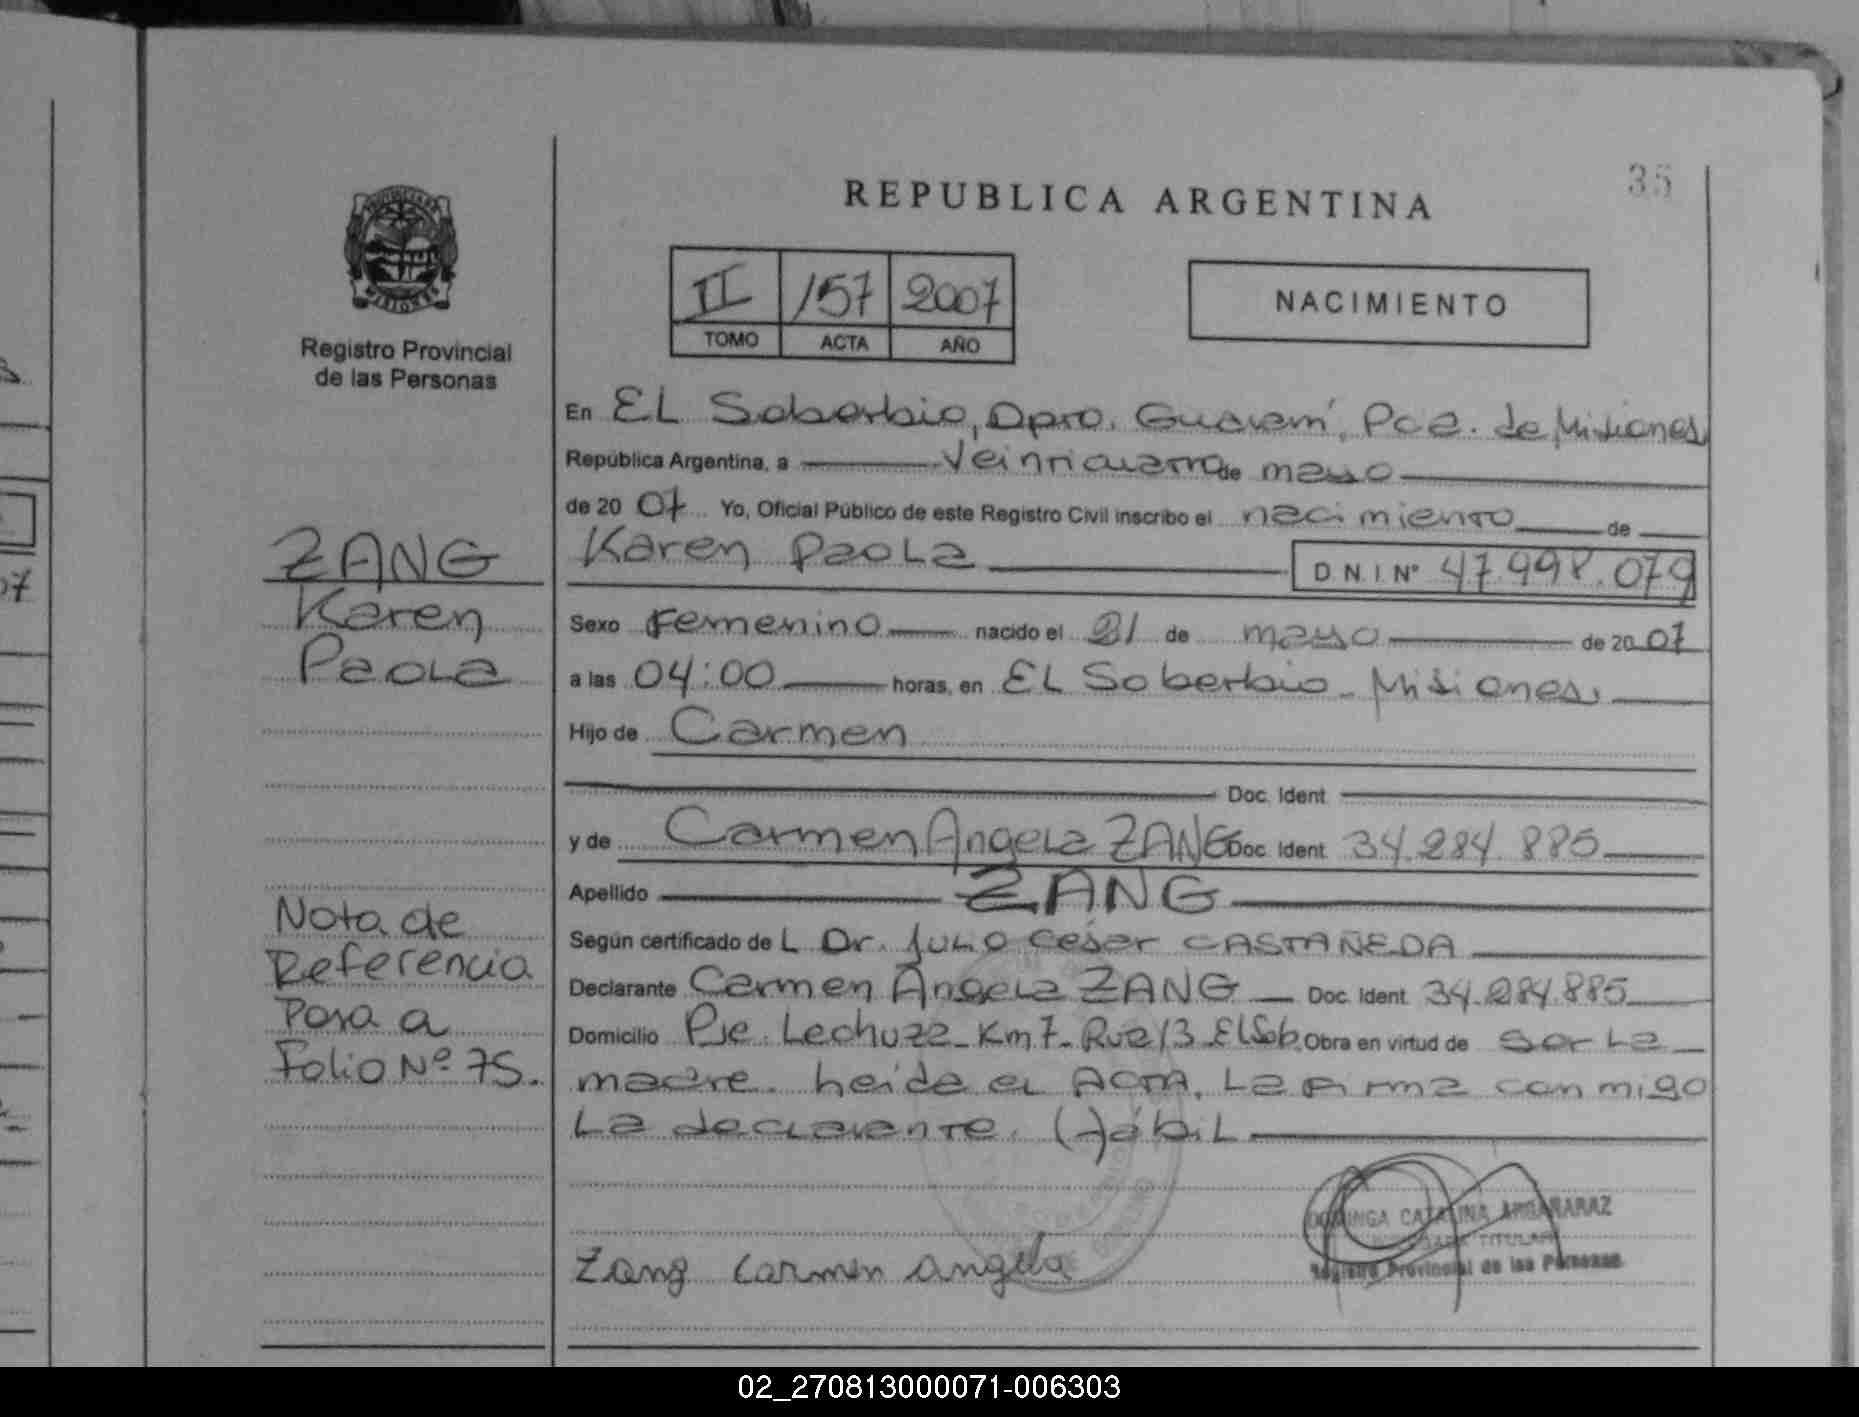 35
REPUBLICA ARGENTINA
II 157 2007
TOMO ACTA AÑO
NACIMIENTO
PROVINCIA DE MISIONES
Registro Provincial
de las Personas
En EL Soberbio, Dpto. Guaraní, Pcia. de Misiones
República Argentina, a Veinticuatro de mayo
de 20 07 Yo, Oficial Público de este Registro Civil inscribo el nacimiento de
Karen Paola D.N.I. Nº 47.998.079
ZANG
Karen
Paola
Sexo Femenino nacido el 21 de mayo de 20 07
a las 04:00 horas, en EL Soberbio - Misiones,
Hijo de Carmen
Doc. Ident.
y de Carmen Angela ZANG Doc. Ident. 34.284.885
Apellido ZANG
Según certificado de L Dr. Julio César CASTAÑEDA
Declarante Carmen Angela ZANG Doc. Ident. 34.284.885
Domicilio Pje. Lechuza - Km 7 - Ruta 13 - El Sob. Obra en virtud de ser La
madre. heida el ACTA, La firma conmigo
La declarante. (H)ábil
Nota de
Referencia
Pasa a
Folio Nº 75.
Zang Carmen angela
DOMINGA CATALINA ARGAÑARAZ
TITULAR
Registro Provincial de las Personas
02_270813000071-006303